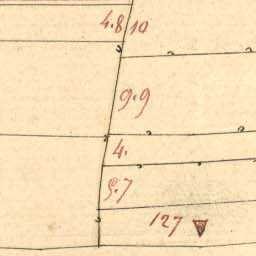 4.8 10
9.9
4.
9.7
127